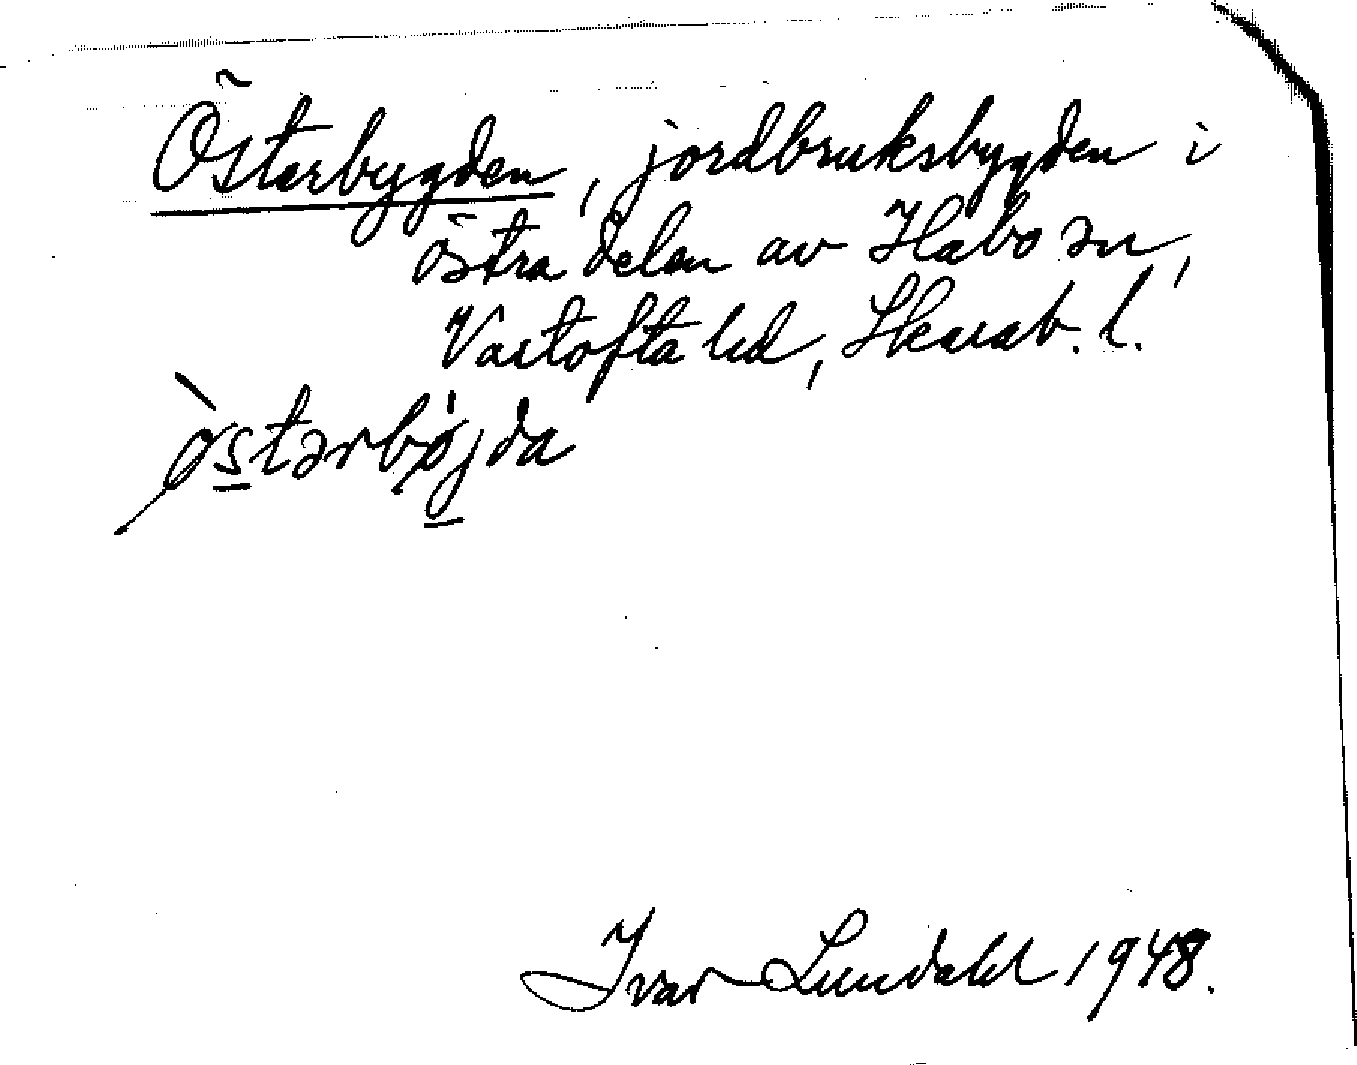 Österbygden, jordbruksbygden i
östra delen av Habo sn,
Vartofta hd, Skarab. l.
òstərbø̀jda
Ivar Lundahl 1948.